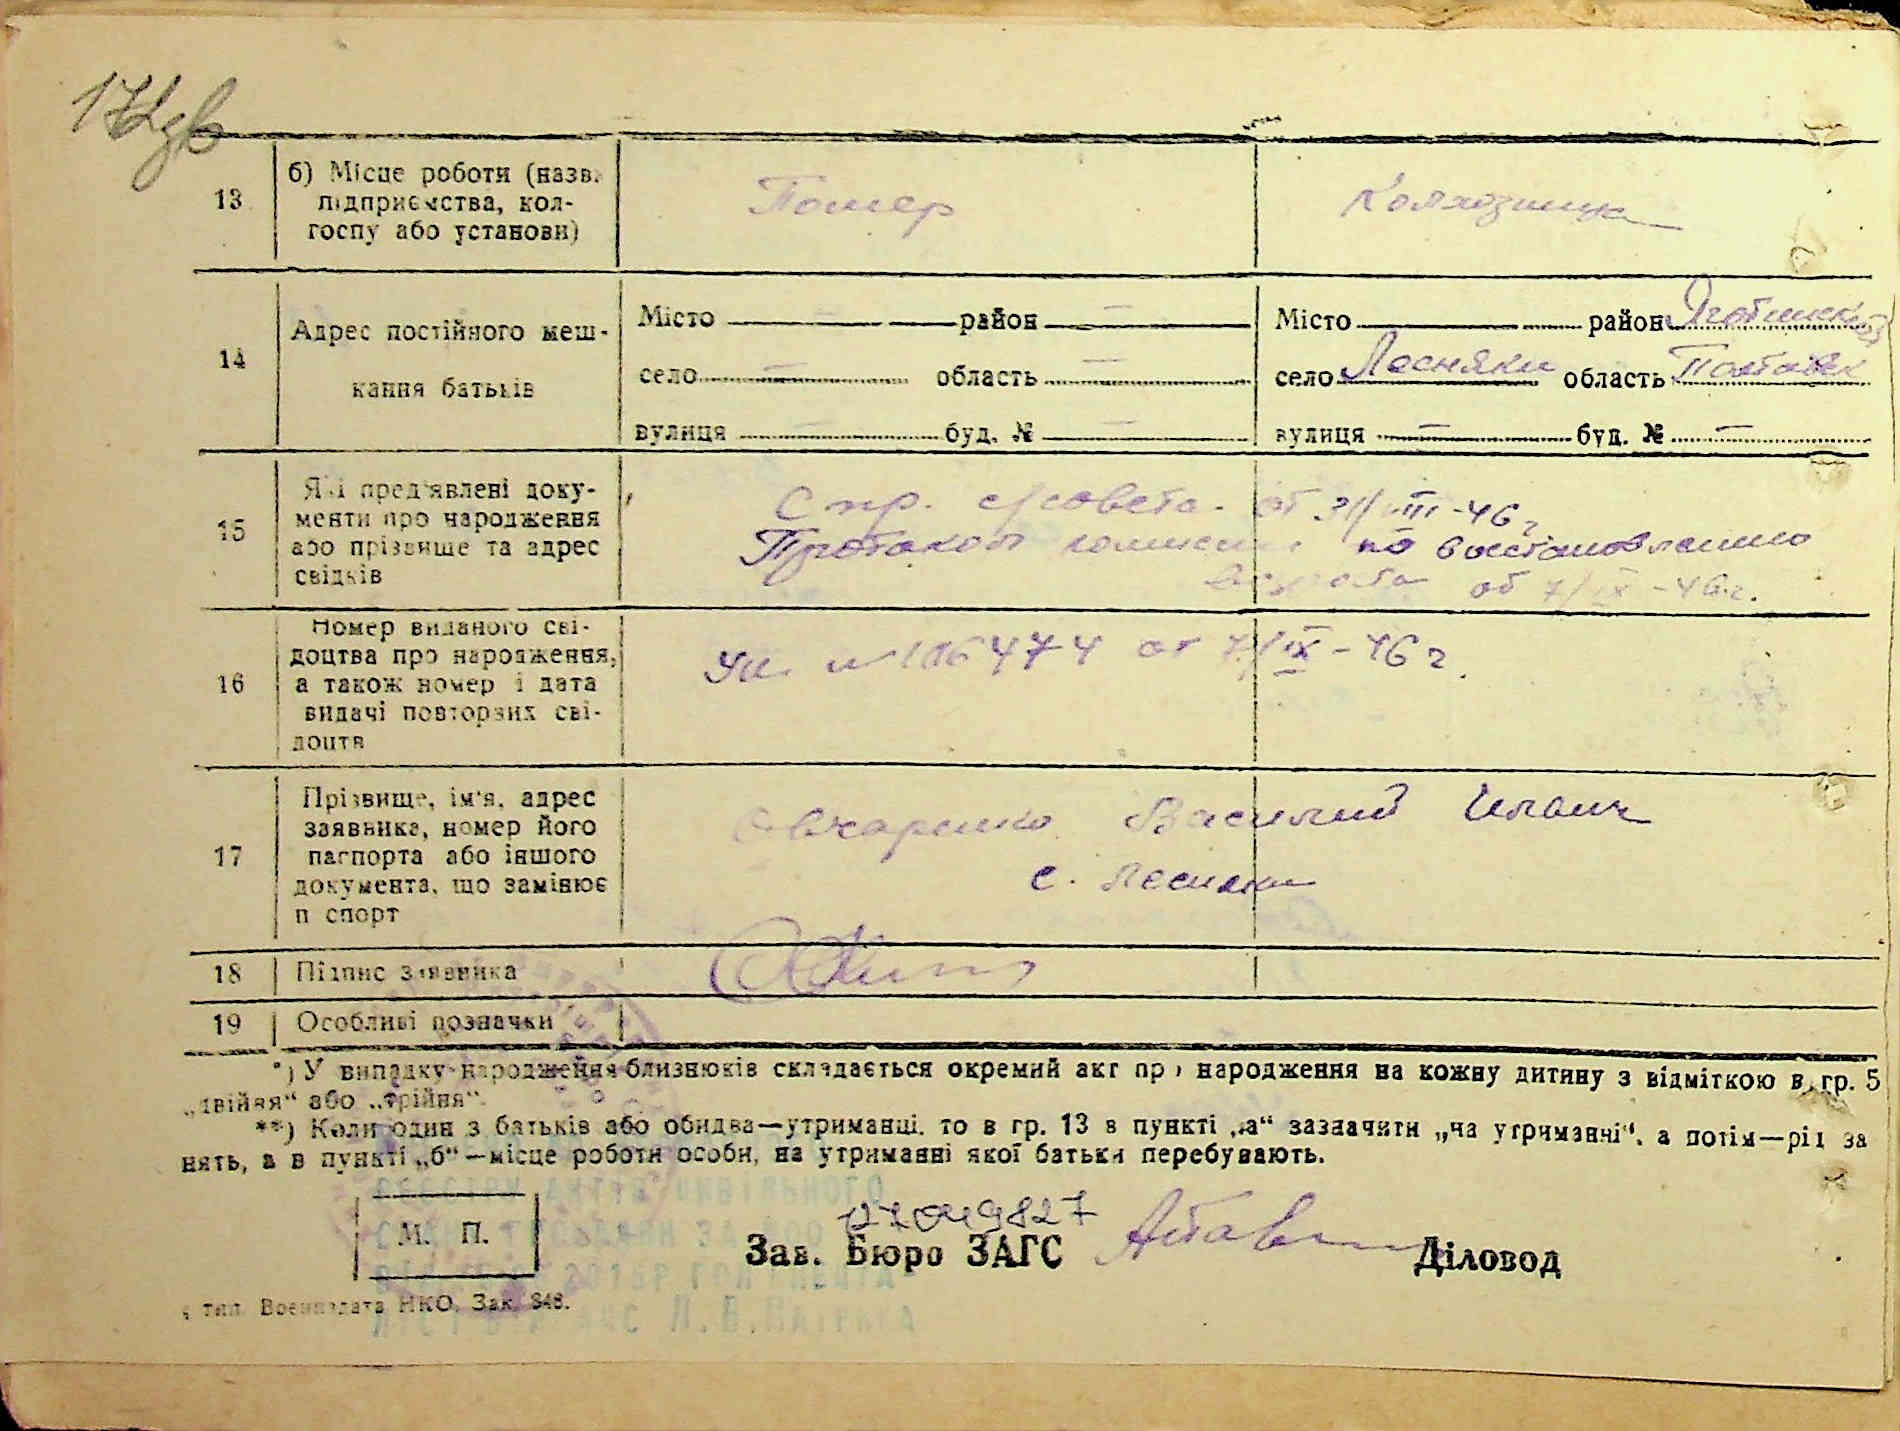 13 б) Місце роботи (назв. підприємства, колгоспу або установи) Помер Колхозница
14 Адрес постійного мешкання батьків
Місто — район — Місто район Яготинский
село — область — село Лесняки область Полтавск
вулиця — буд. № — вулиця — буд. № —
15 Які пред'явлені документи про народження або прізвище та адрес свідків
Спр. с/совета. от 31/VIII-46 г.
Протокол комиссии по восстановлению
возраста от 7/IX-46 г.
16 Номер виданого свідоцтва про народження, а також номер і дата видачі повторних свідоцтв
№ 106474 от 7/IX-46 г.
17 Прізвище, ім'я, адрес заявника, номер його паспорта або іншого документа, що замінює паспорт
Овчаренко Василий
с. Лесняки
18 Підпис заявника
19 Особливі позначки
*) У випадку народження близнюків складається окремий акт про народження на кожну дитину з відміткою в гр. 5
„двійня“ або „трійня“.
**) Коли один з батьків або обидва—утриманці, то в гр. 13 в пункті „а“ зазначити „на утриманні“, а потім—рід за
нять, а в пункті „б“—місце роботи особи, на утриманні якої батьки перебувають.
М. П.
Зав. Бюро ЗАГС Діловод
тип. Воениздата НКО. Зак. 846.